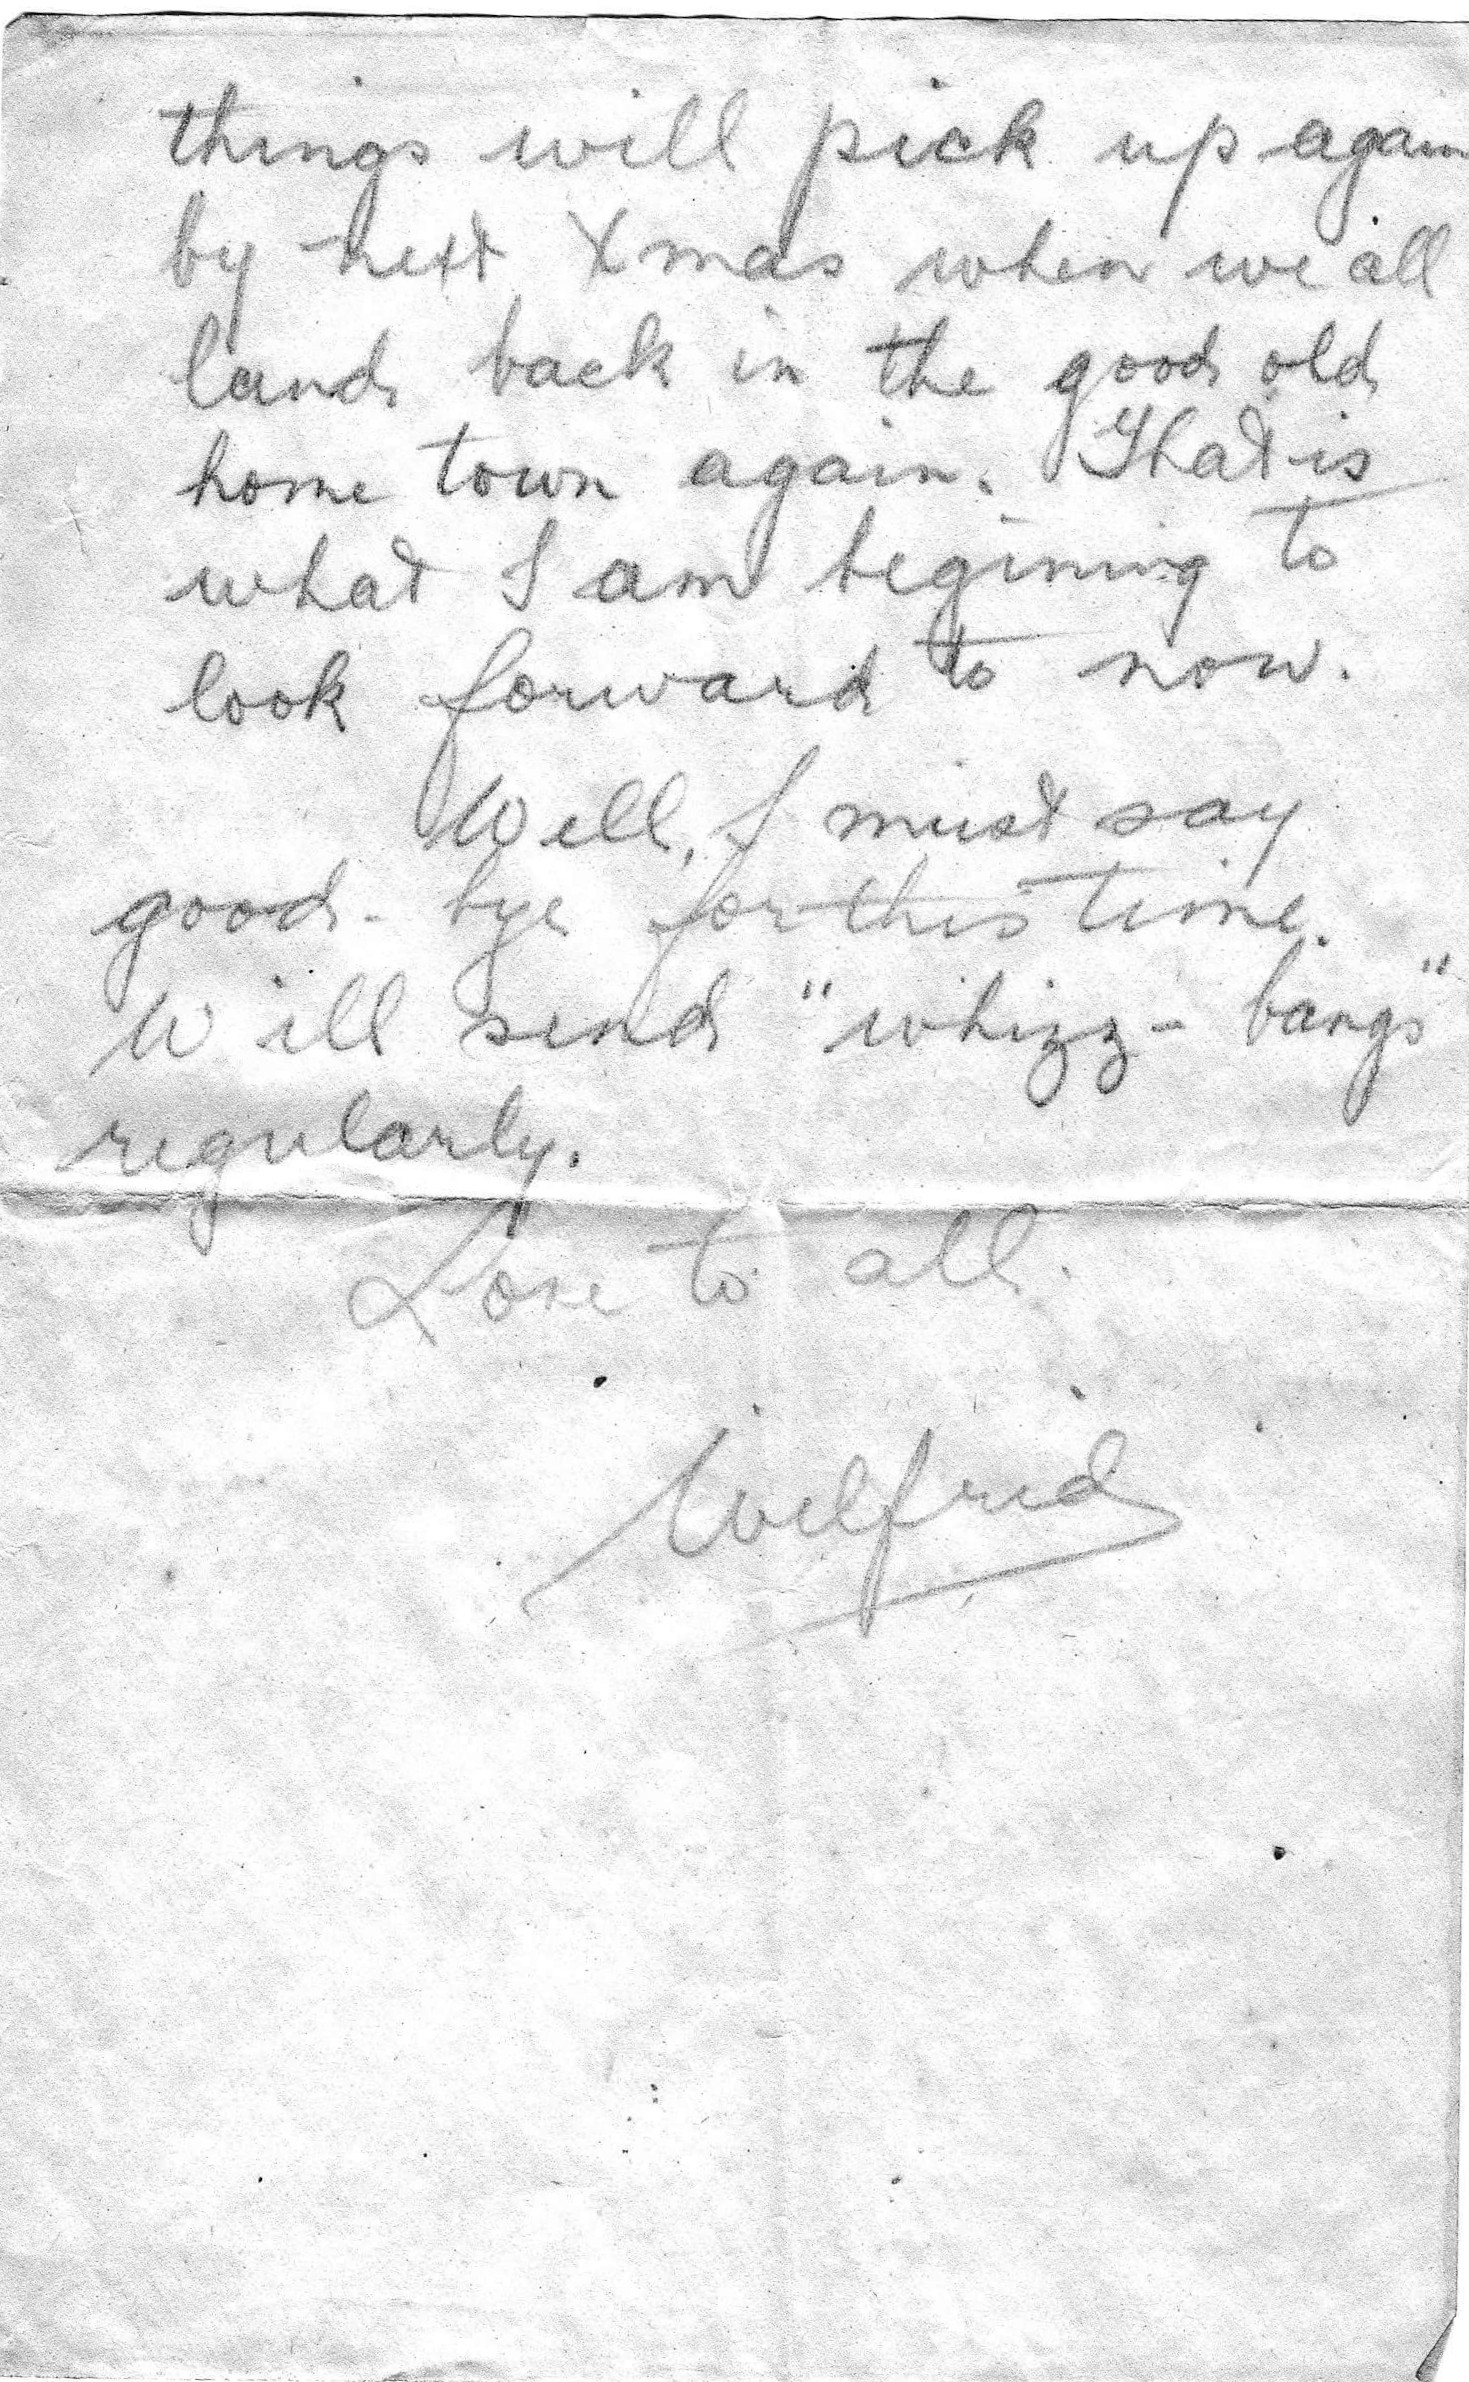 things will pick up again
by next Xmas when we all
land back in the good old
home town again. That is
what I am begining to
look forward to now.
Well, I must say
good-bye for this time.
Will send "whizz-bangs"
regularly.
Love to all.
Wilfrid